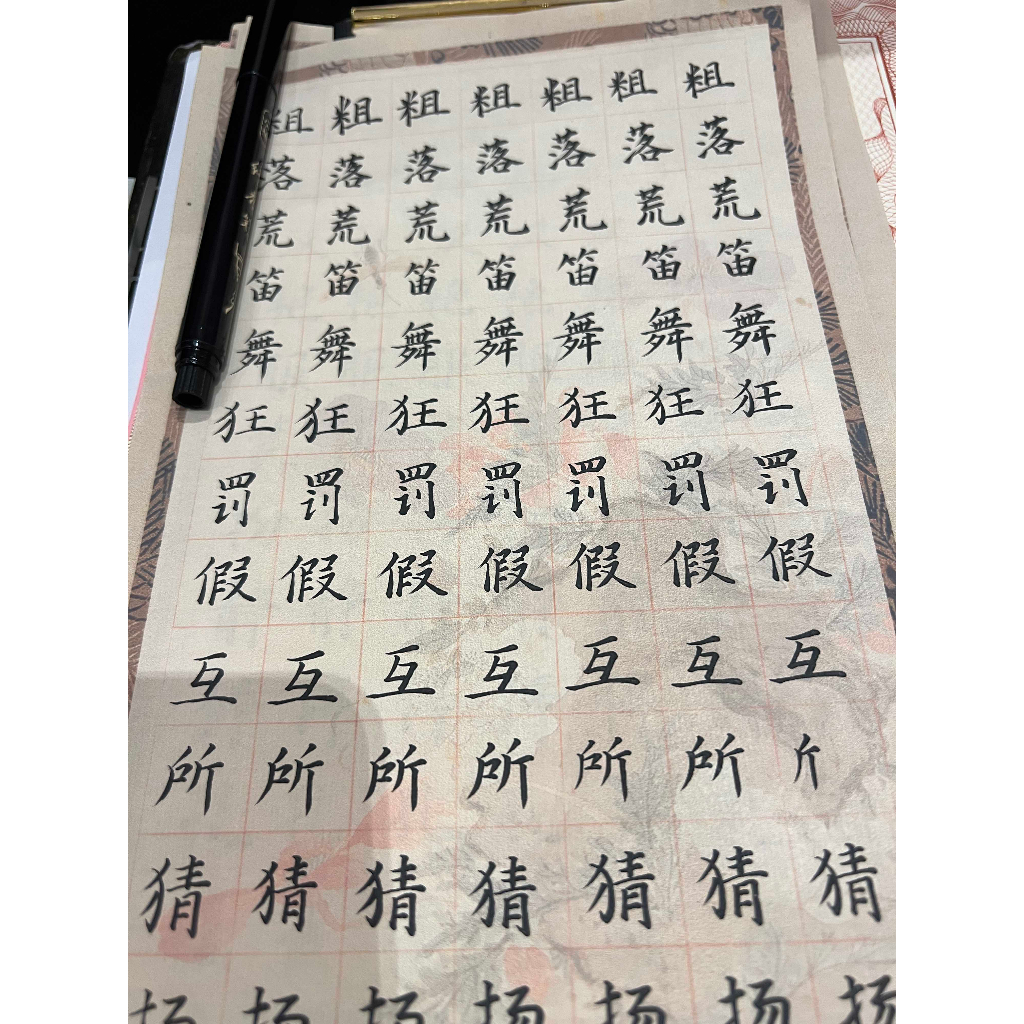 粗粗粗粗粗粗粗
落落落落落落落
荒荒荒荒荒荒荒
笛笛笛笛笛笛笛
舞舞舞舞舞舞舞
狂狂狂狂狂狂狂
罚罚罚罚罚罚罚
假假假假假假假
互互互互互互互
所所所所所所
猜猜猜猜猜猜猜